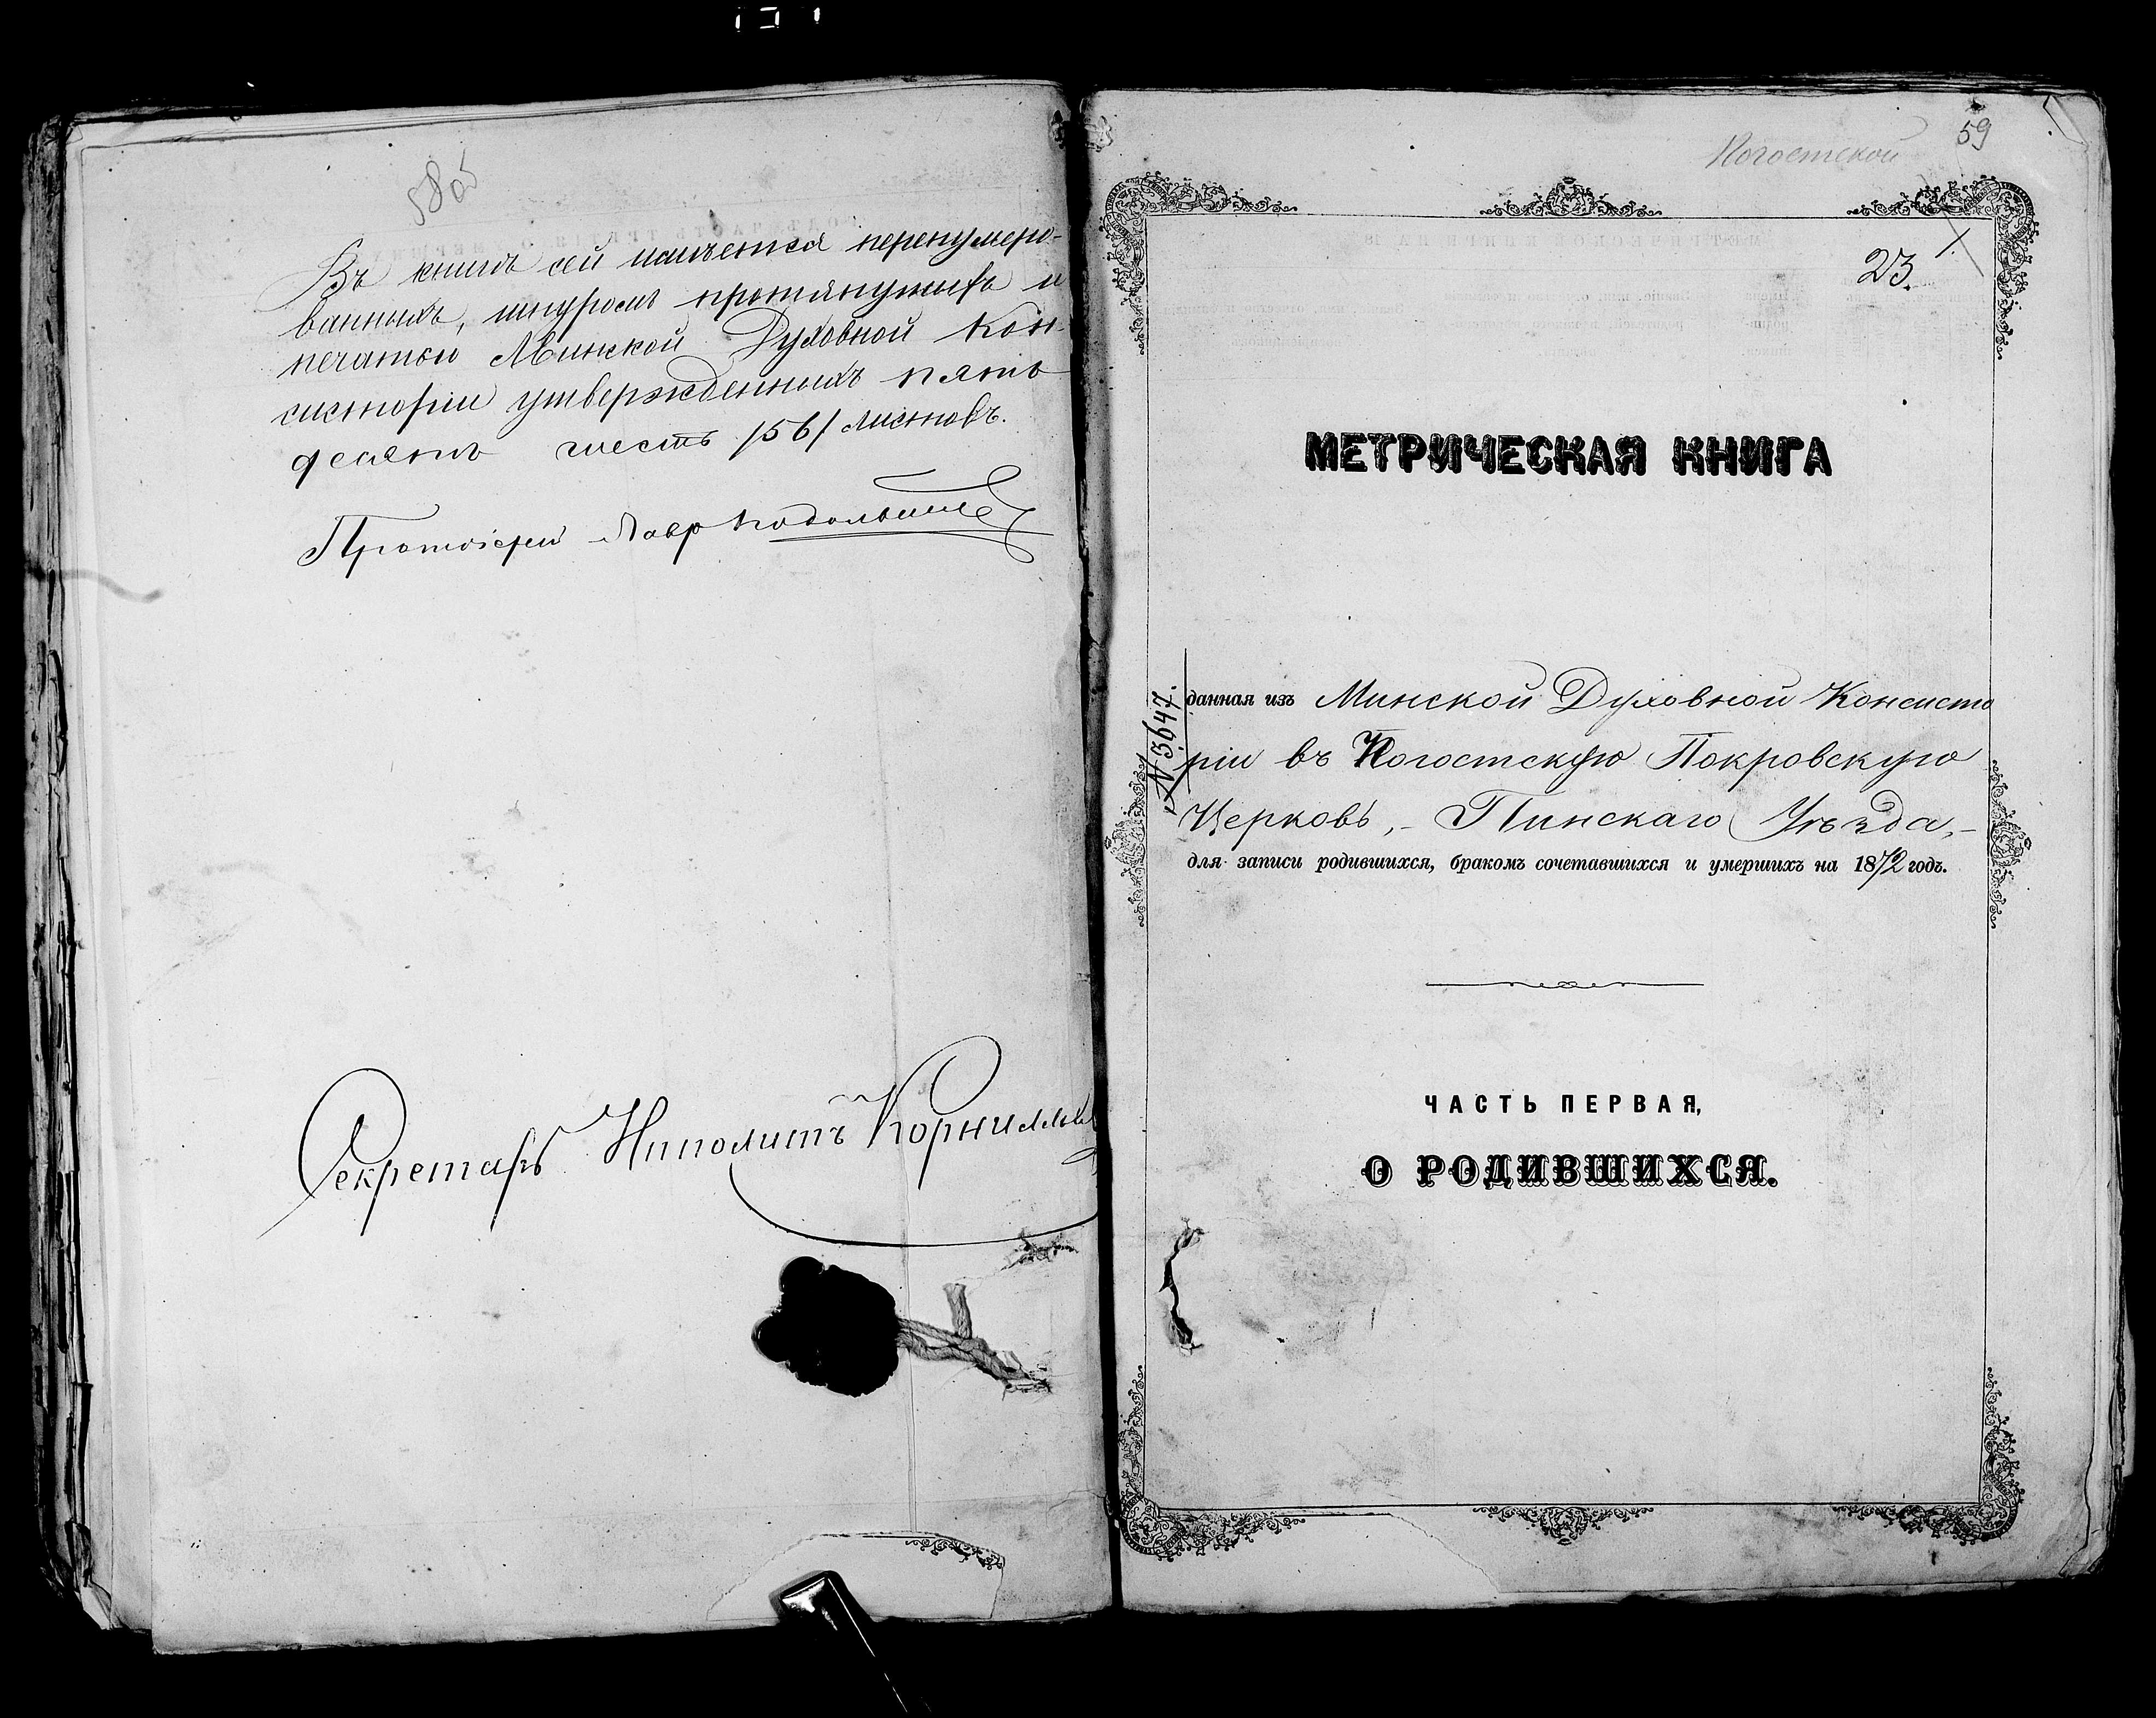 58об
Въ книгѣ сей имѣется перенумеро-
ванныхъ, шнуромъ протянутыхъ и
печатью Минской Духовной Кон-
систоріи утвержденныхъ пять
десятъ шесть /56/ листовъ.
Протоіерей Лавр
Секретарь Ипполитъ
Погостской
59
1.
23.
МЕТРИЧЕСКАЯ КНИГА
№ 3647.
данная изъ Минской Духовной Консисто
ріи въ Погостскую Покровскую
Церковь, - Пинскаго Уѣзда, -
для записи родившихся, бракомъ сочетавшихся и умершихъ на 1872 годъ.
ЧАСТЬ ПЕРВАЯ,
О РОДИВШИХСЯ.